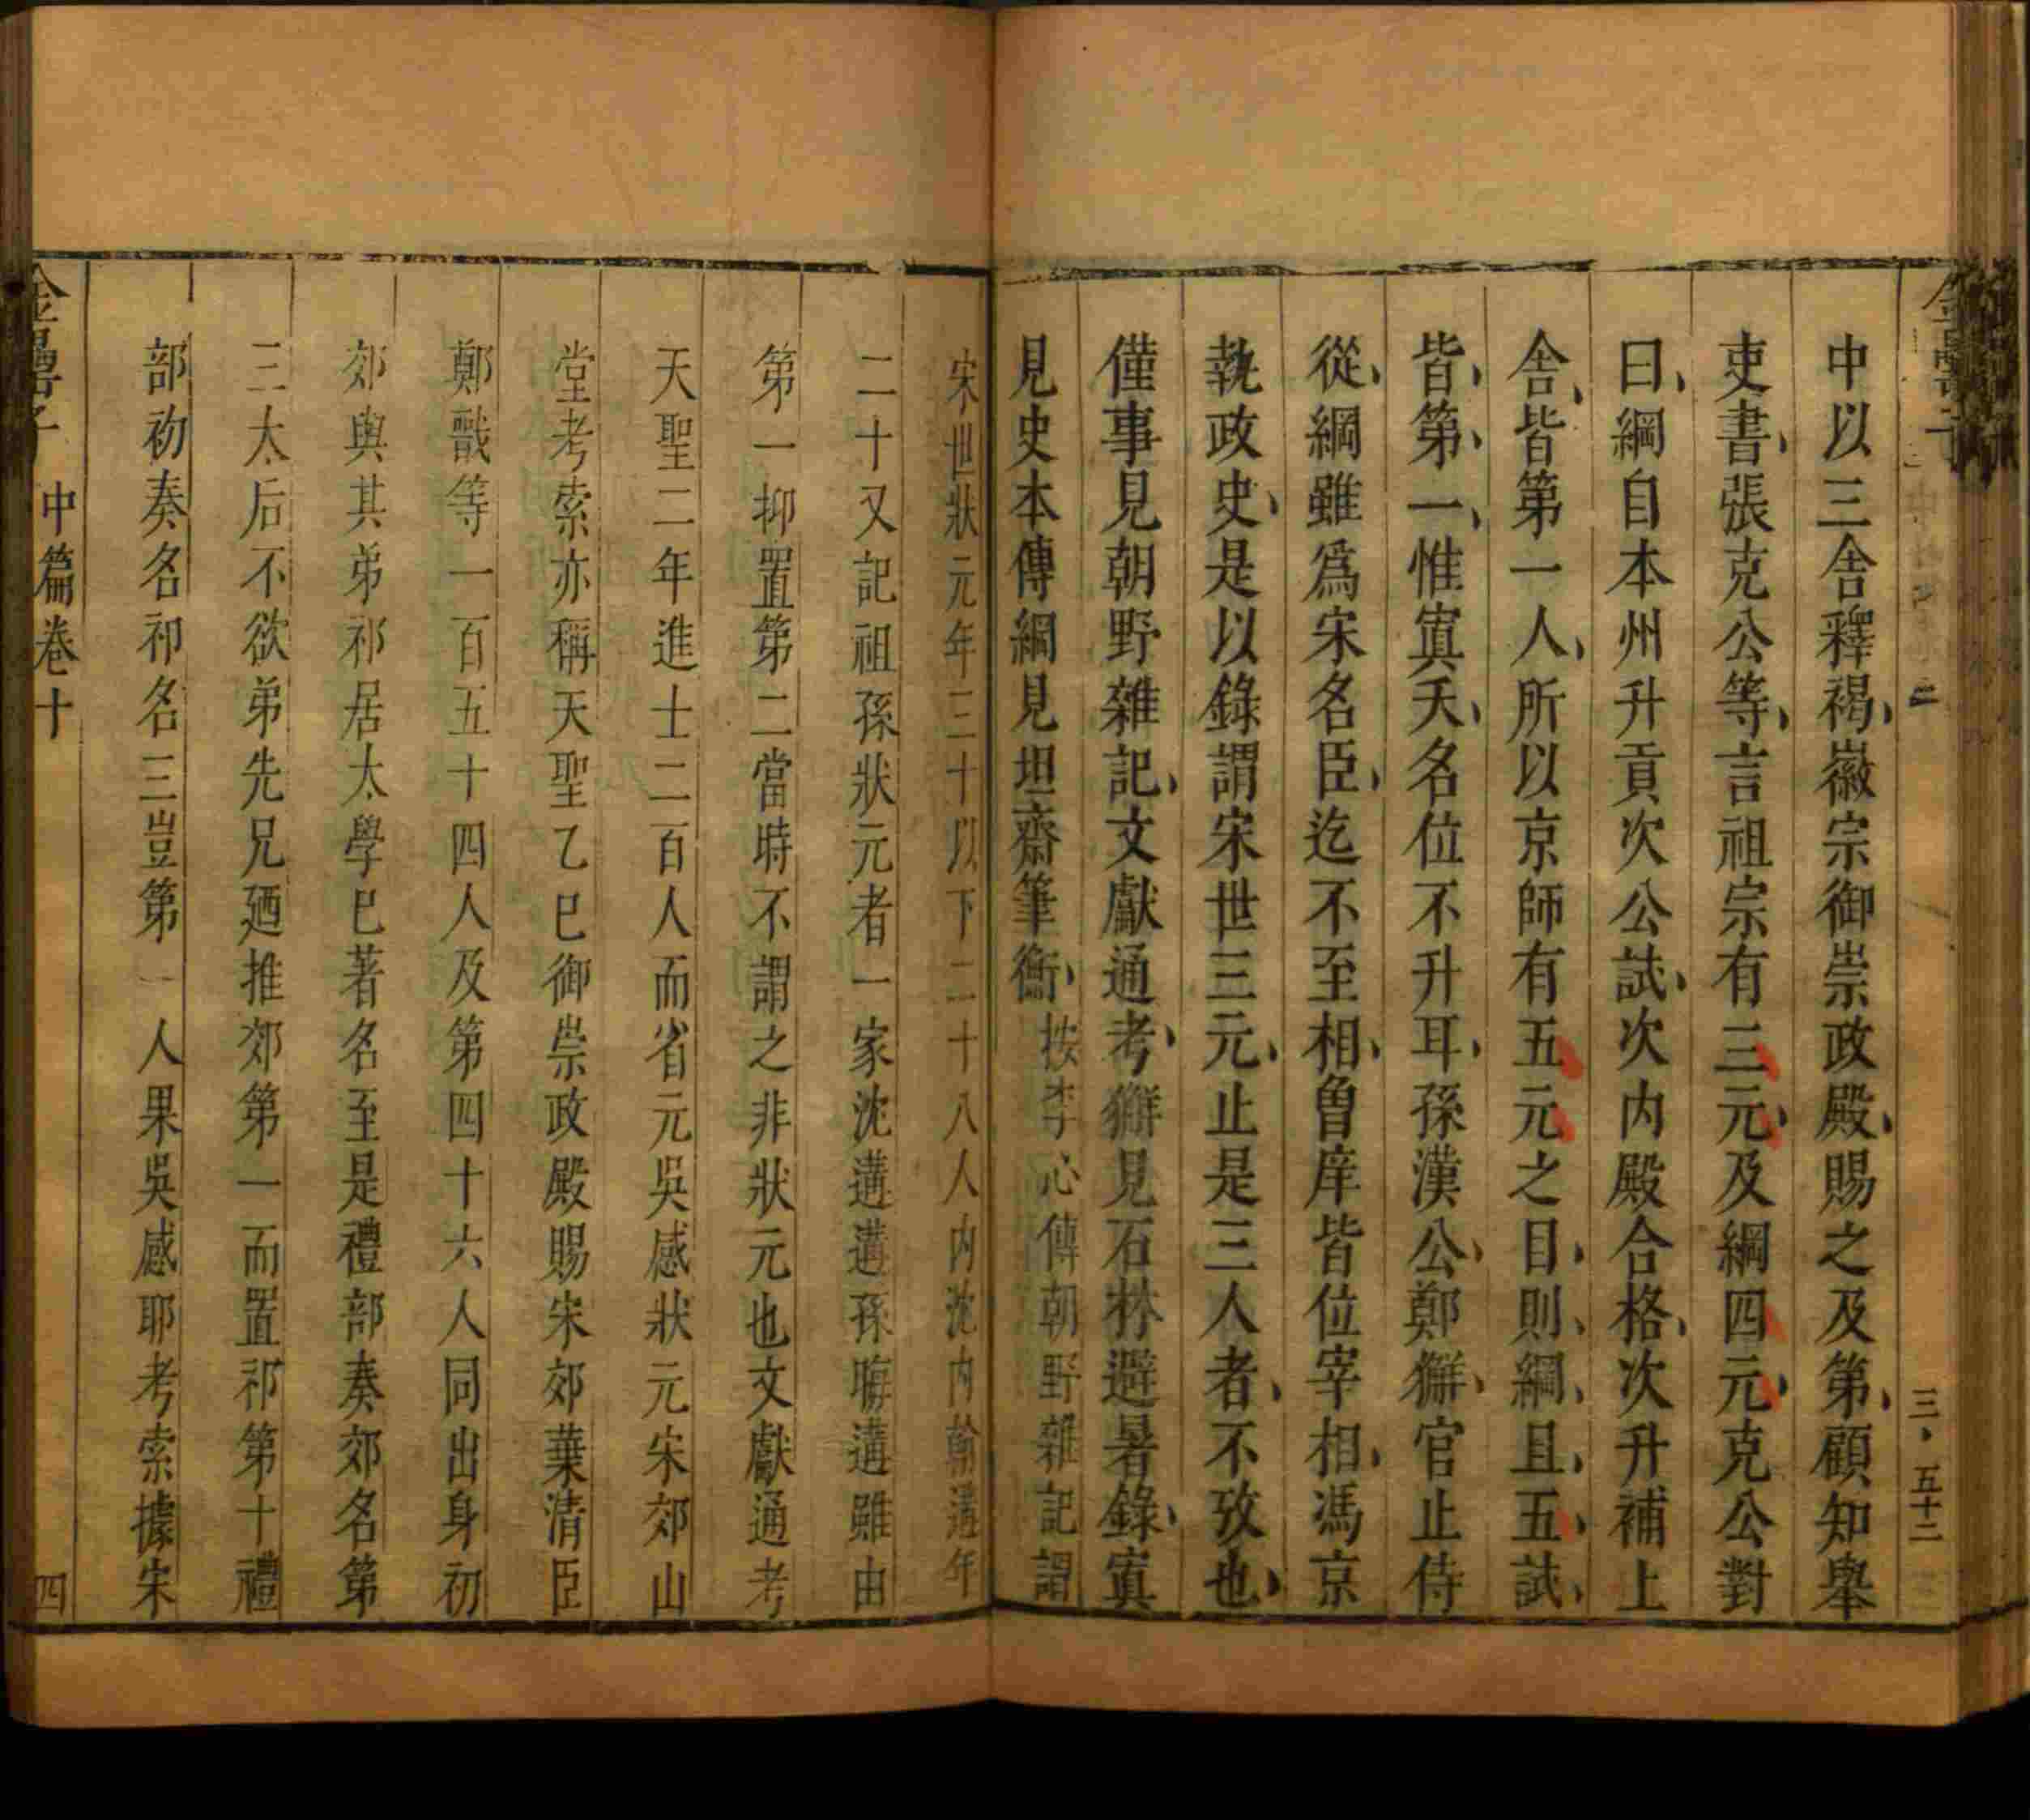 中以三舍釋褐徽宗御崇政殿賜之及第顧知舉
吏書張克公等言祖宗有三元及綱四元克公對
曰綱自本州升貢次公試次内殿合格次升補上
舍皆第一人所以京師有五元之目則綱且五試
皆第一惟寘夭名位不升耳孫漢公鄭獬官止侍
從綱雖爲宋名臣迄不至相魯庠皆位宰相馮京
執政史是以錄謂宋世三元止是三人者不攷也
僅事見朝野雜記文獻通考獬見石林避暑錄寘
見史本傳綱見坦齋筆衡按李心傳朝野雜記謂
宋世狀元年三十以下二十八人内沈内翰遘年
二十又記祖孫狀元者一家沈遘遘孫晦遘雖由
第一抑置第二當時不謂之非狀元也文獻通考
天聖二年進士二百人而省元吳感狀元宋郊山
堂考索亦稱天聖乙巳御崇政殿賜宋郊葉清臣
鄭戩等一百五十四人及第四十六人同出身初
郊與其弟祁居太學巳著名至是禮部奏郊名第
三太后不欲弟先兄廼推郊第一而置祁第十禮
部初奏名祁名三豈第一人果吳感耶考索據宋
金罍子
中篇卷十
四
三
五十二